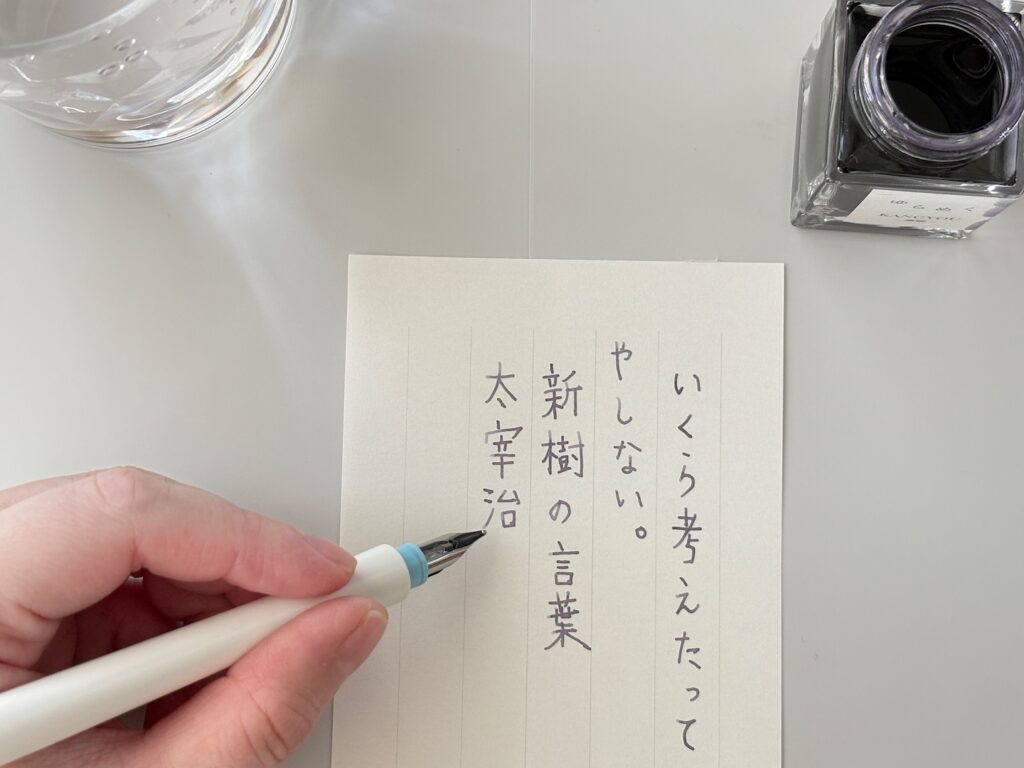 いくら考えたって
やしない。
新樹の言葉
太宰治
ゆらめく
KANGYOU